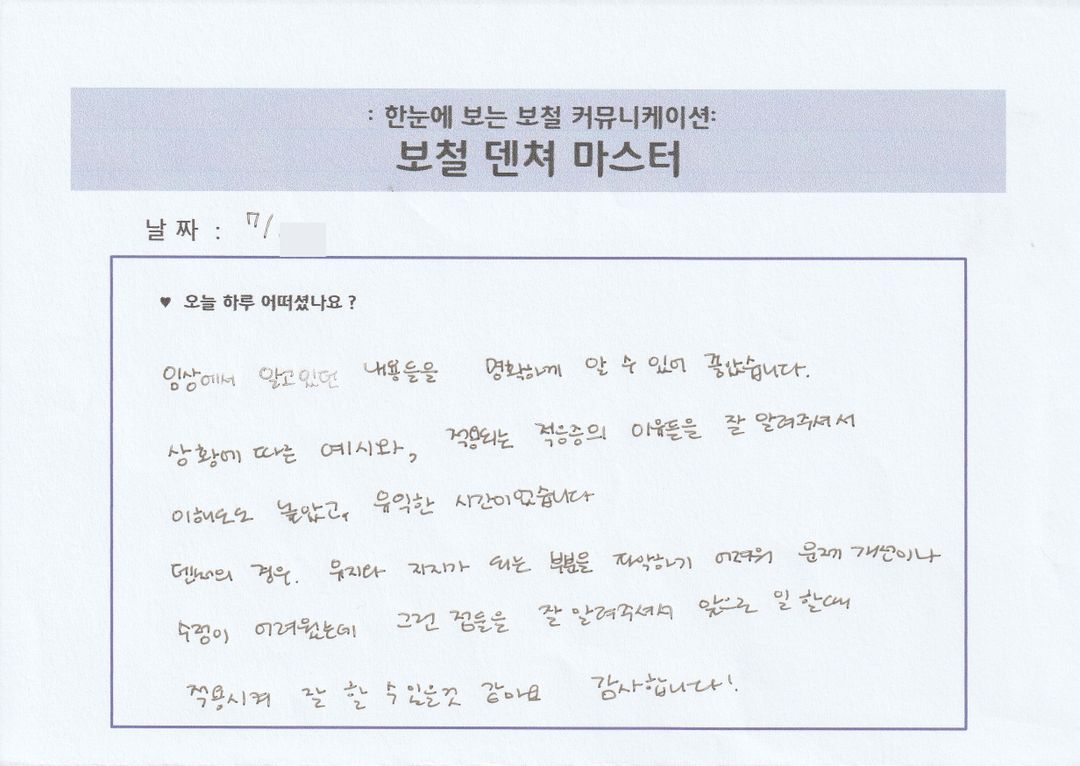 : 한눈에 보는 보철 커뮤니케이션:
보철 덴쳐 마스터
날짜 : 7/
♥ 오늘 하루 어떠셨나요 ?
임상에서 알고있던 내용들을 명확하게 알 수 있어 좋았습니다.
상황에 따른 예시와, 적용되는 적응증의 이유들을 잘 알려주셔서
이해도도 높았고, 유익한 시간이었습니다
덴쳐의 경우. 유지와 지지가 되는 부분을 파악하기 어려워 문제 개선이나
수정이 어려웠는데 그런 점들을 잘 알려주셔서 앞으로 일 할때
적용시켜 잘 할 수 있을것 같아요 감사합니다!